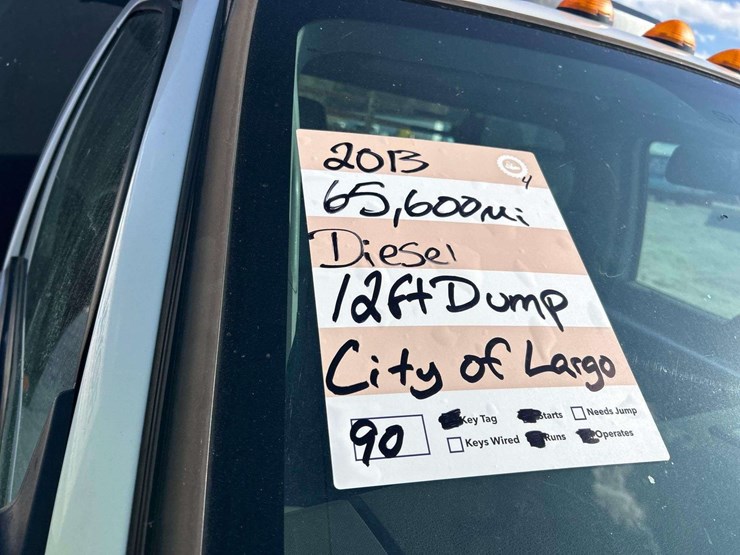 2013
4
65,600mi
Diesel
12ft Dump
City of Largo
90
Key Tag Starts Needs Jump
Keys Wired Runs Operates